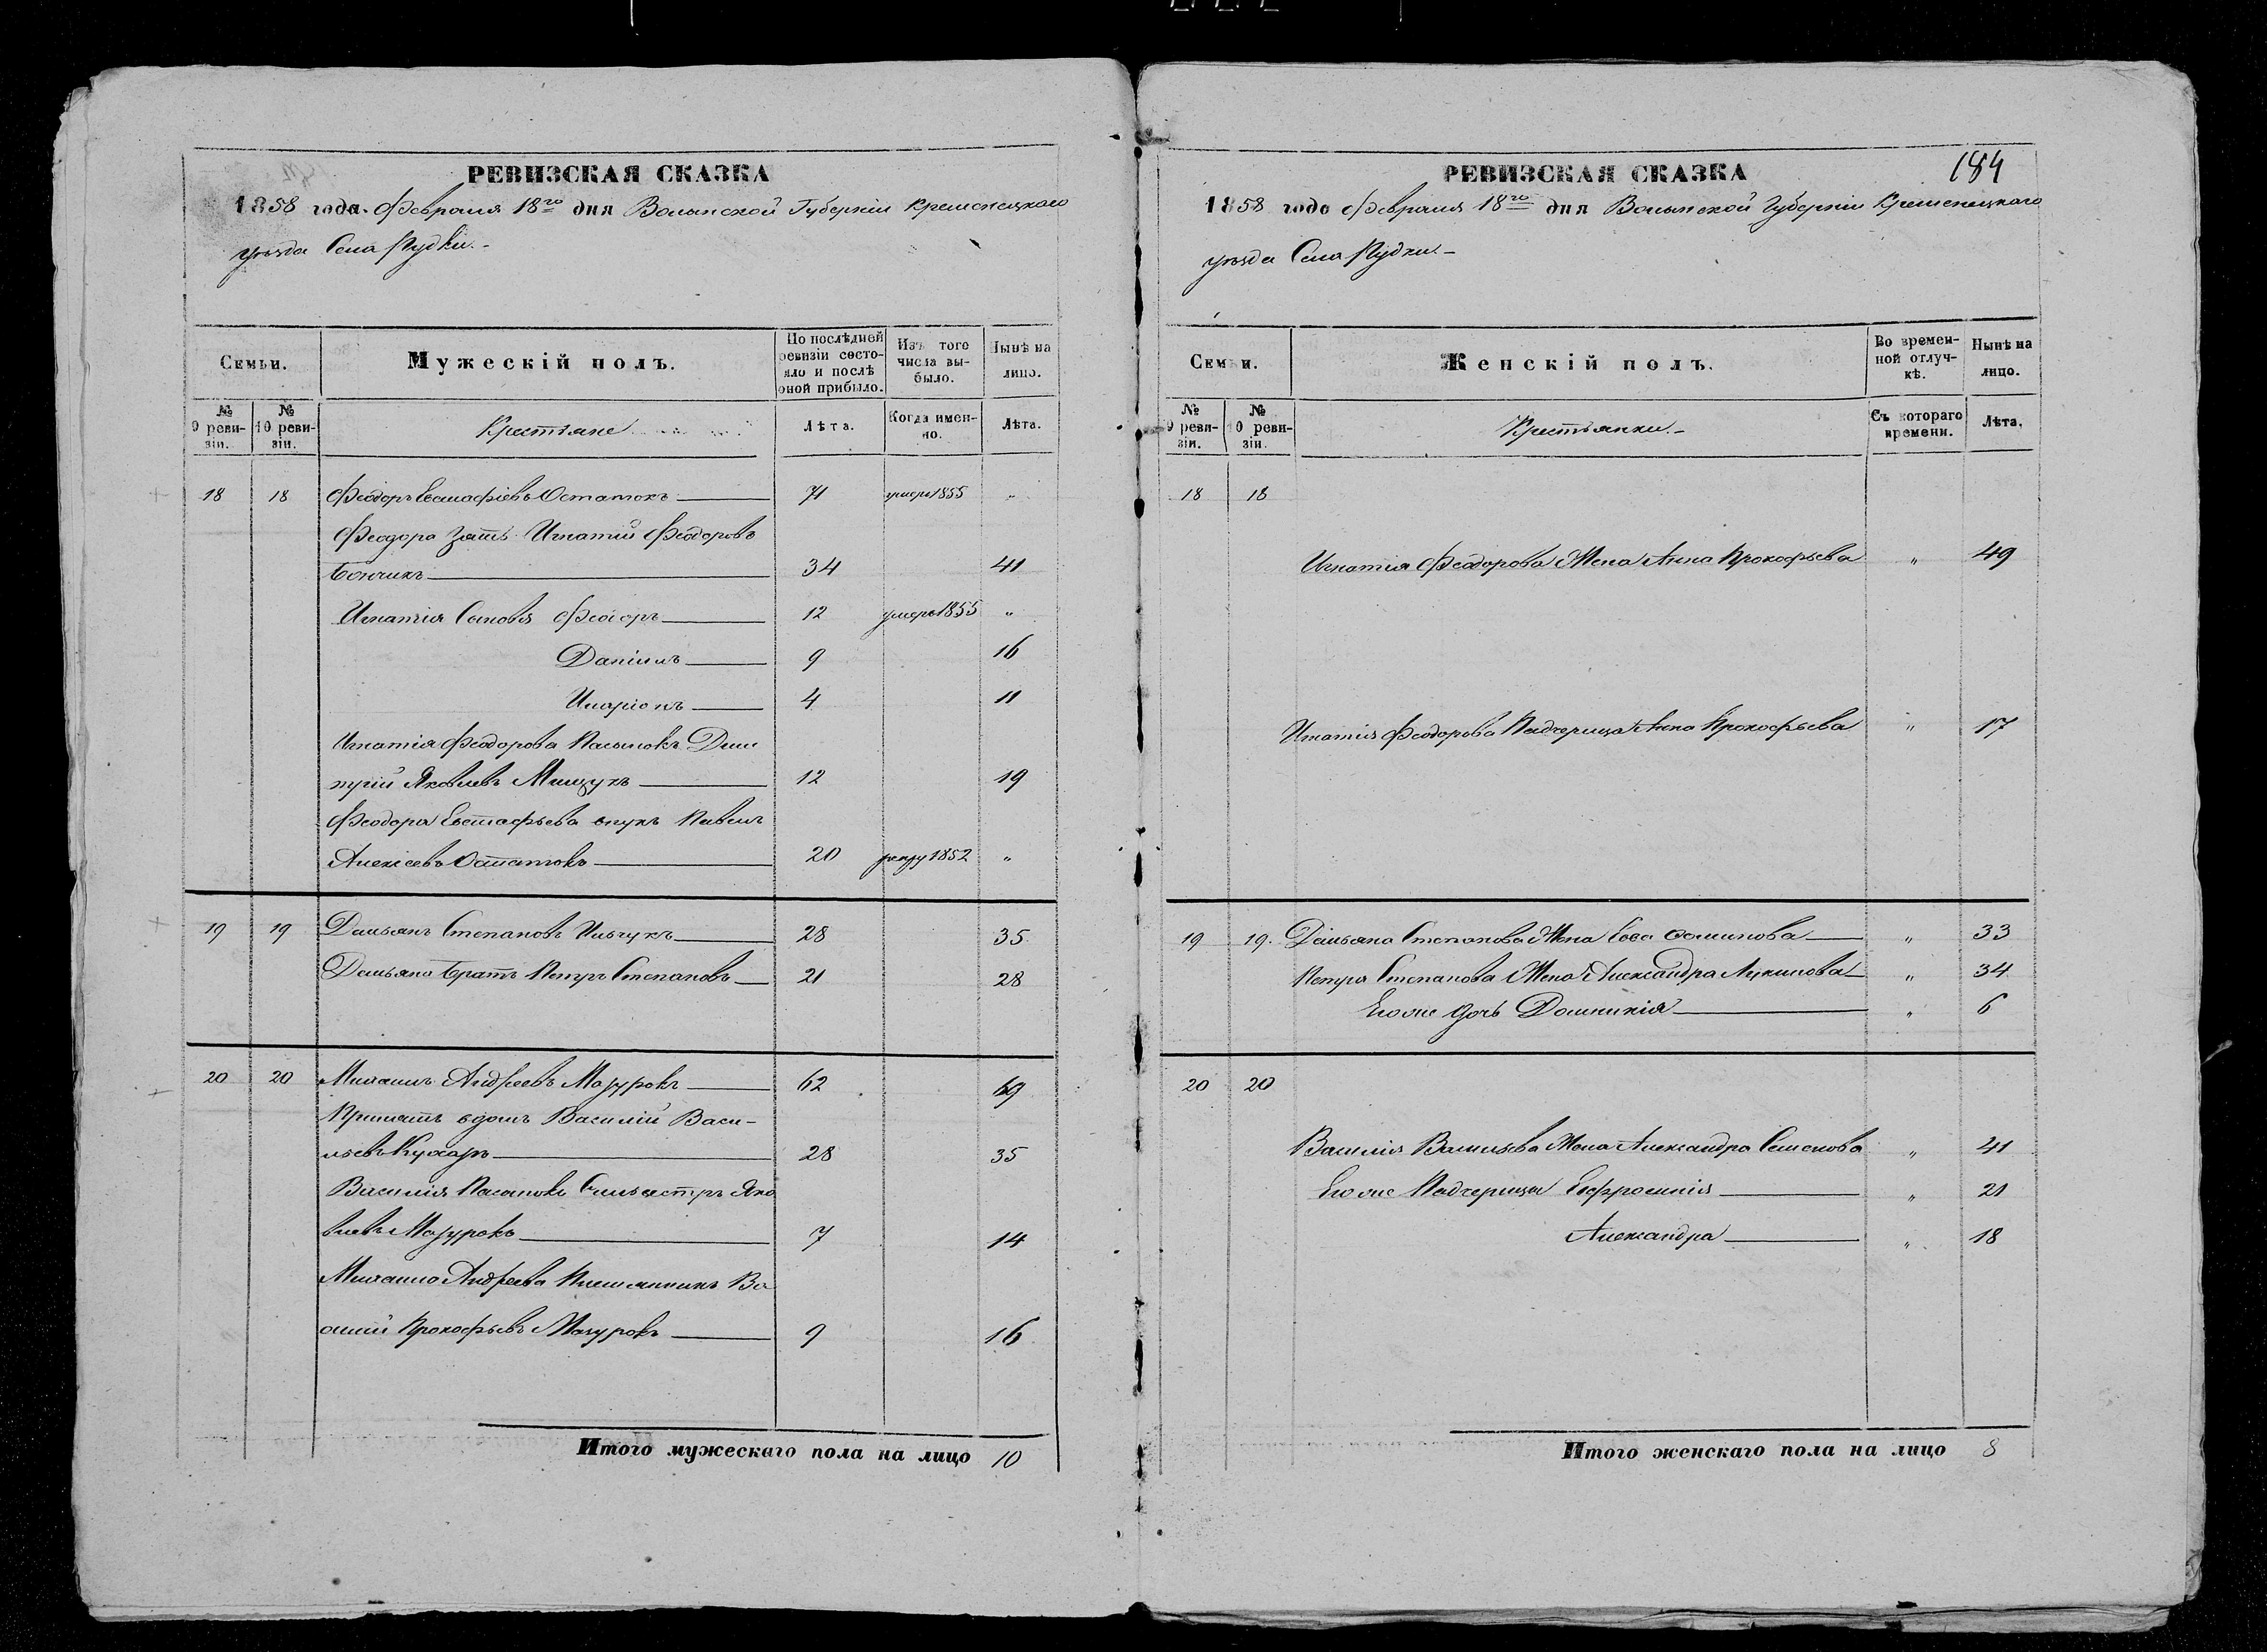 РЕВИЗСКАЯ СКАЗКА
1858 года Февраля 18го дня Волынской Губерніи Кременецкаго
уѣзда Села Рудки.-
Семьи.
Мужескій полъ.
По послѣдней ревизіи состояло и послѣ оной прибыло.
Изъ того числа выбыло.
Нынѣ на лицо.
№ 9 ревизіи.
№ 10 ревизіи.
Крестьяне
Лѣта.
Когда именно.
Лѣта.
18 18 Феодоръ Евстафіевъ Остатокъ 71 умеръ 1855 "
Феодора зять Игнатій Феодоровъ
Бончикъ 34 41
Игнатія Сыновья Феодоръ 12 умеръ 1855 "
Даніилъ 9 16
Иларіонъ 4 11
Игнатія Феодорова Пасынокъ Дми
трій Яковлевъ Мищукъ 12 19
Феодора Евстафьева внукъ Павелъ
Алексіевъ Остатокъ 20 рекру 1852 "
19 19 Демьянъ Степановъ Ильчукъ 28 35
Демьяна братъ Петръ Степановъ 21 28
20 20 Михаилъ Андреевъ Мазурокъ 62 69
Принятъ в домъ Василій Васи-
льевъ Кухарь 28 35
Василія Пасынокъ Сильвестръ Яко
влевъ Мазурокъ 7 14
Михаила Андреева Племянникъ Ва
силій Прокофьевъ Мазурокъ 9 16
Итого мужескаго пола на лицо 10
184
РЕВИЗСКАЯ СКАЗКА
1858 года Февраля 18го дня Волынской Губерніи Кременецкаго
уѣзда Села Рудки.-
Семьи.
Женскій полъ.
Во временной отлучкѣ.
Нынѣ на лицо.
№ 9 ревизіи.
№ 10 ревизіи.
Крестьянки.-
Съ котораго времени.
Лѣта.
18 18
Игнатія Феодорова Жена Анна Прокофьева " 49
Игнатія Феодорова Падчерица Анна Прокофьева " 17
19 19. Демьяна Степанова Жена Ева Фоминова " 33
Петра Степанова Жена Александра Лукинова " 34
Его же дочь Домникія " 6
20 20
Василія Васильева Жена Александра Семенова " 41
Его же Падчерицы Ефросинія " 21
Александра " 18
Итого женскаго пола на лицо 8